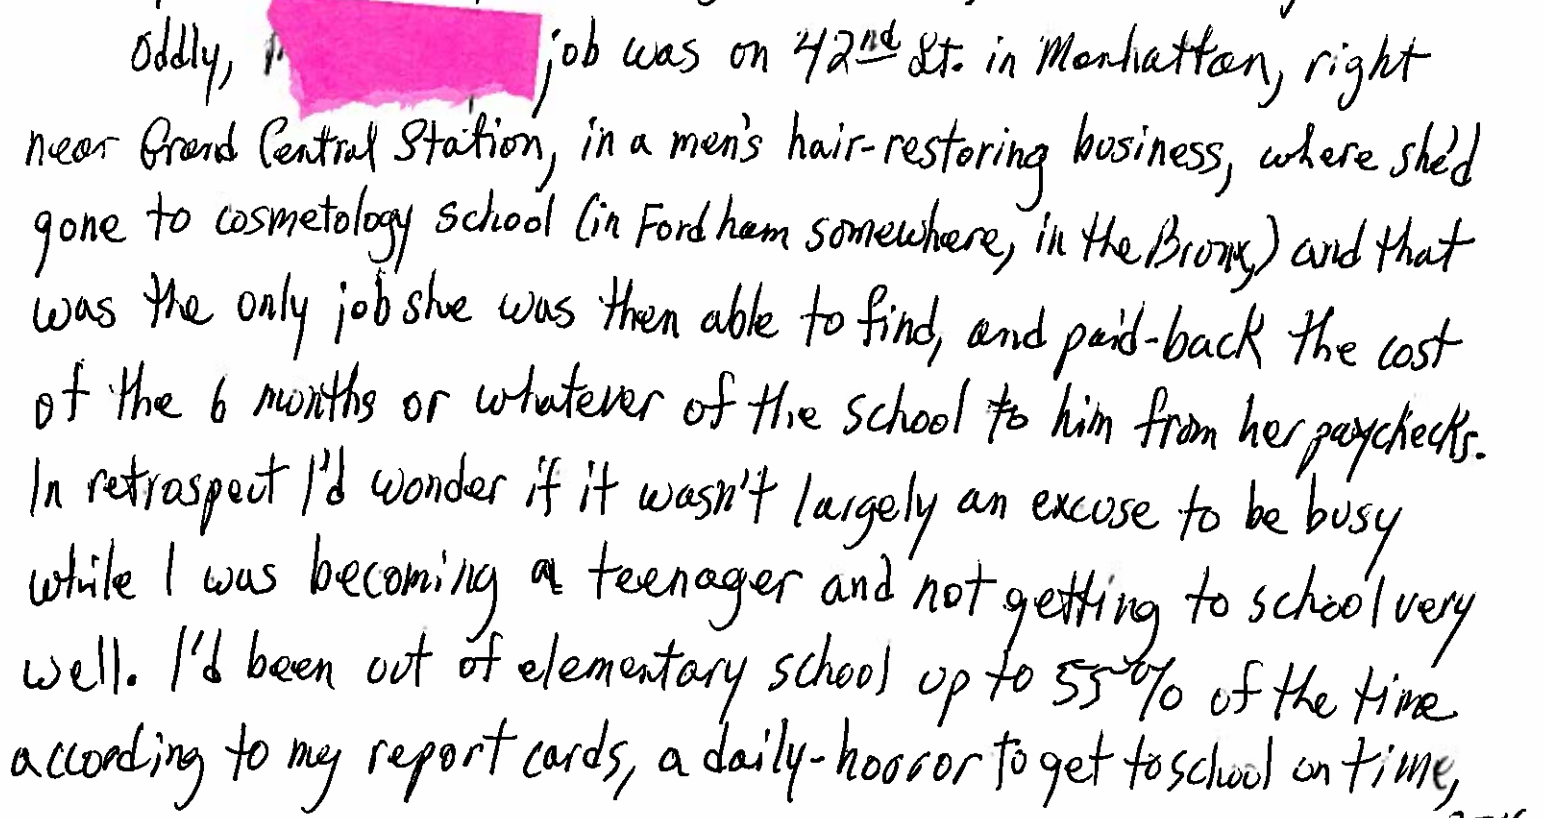 Oddly, job was on 42nd St. in Manhattan, right
near Grand Central Station, in a men's hair-restoring business, where she'd
gone to cosmetology school (in Fordham somewhere, in the Bronx,) and that
was the only job she was then able to find, and paid-back the cost
of the 6 months or whatever of the school to him from her paychecks.
In retrospect I'd wonder if it wasn't largely an excuse to be busy
while I was becoming a teenager and not getting to school very
well. I'd been out of elementary school up to 55% of the time
according to my report cards, a daily-horror to get to school on time,